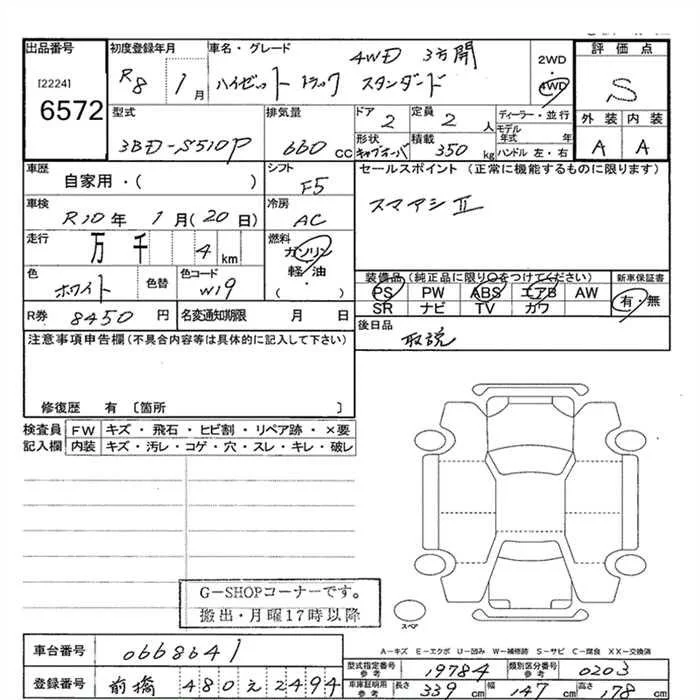 出品番号
[2224]
6572
初度登録年月
R8 1月
車名・グレード
4WD 3方開
ハイゼット トラック スタンダード
2WD
・
4WD
評価点
S
外装 内装
A A
型式
3BD-S510P
排気量
660 CC
ドア
2
定員
2 人
形状
キャブオーバ
積載
350 kg
ディーラー・並行
モデル年式 年
ハンドル 左・右
車歴
自家用・( )
シフト
F5
セールスポイント (正常に機能するものに限ります)
スマアシⅡ
車検
R10年 1月(20日)
冷房
AC
走行
万 千 4 km
燃料
ガソリン
軽・油
( ・ )
色
ホワイト
色替
色コード
W19
装備品 (純正品に限り○をつけてください)
PS PW ABS エアB AW
SR ナビ TV カワ
新車保証書
有・無
R券 8450 円
名変通知期限 月 日
後日品
取説
注意事項申告欄(不具合内容等は具体的に記入して下さい)
修復歴 有 〔箇所 〕
検査員記入欄
FW キズ・飛石・ヒビ割・リペア跡・×要
内装 キズ・汚レ・コゲ・穴・スレ・キレ・破レ
G-SHOPコーナーです。
搬出・月曜17時以降
スペア
A-キズ E-エクボ U-凹み W-補修跡 S-サビ C-腐食 XX-交換済
車台番号 0668641
登録番号 前橋 480 え 2494
型式指定番号 参考 19784
類別区分番号 参考 0203
車庫証明用 参考
長さ 339 cm
幅 147 cm
高さ 178 cm